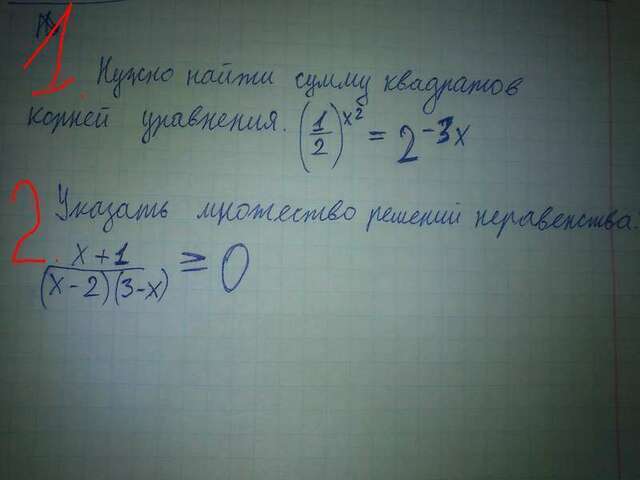 1. Нужно найти сумму квадратов
корней уравнения. (1/2)^x² = 2^-3x
2. Указать множество решений неравенства.
x+1/(x-2)(3-x) ≥ 0